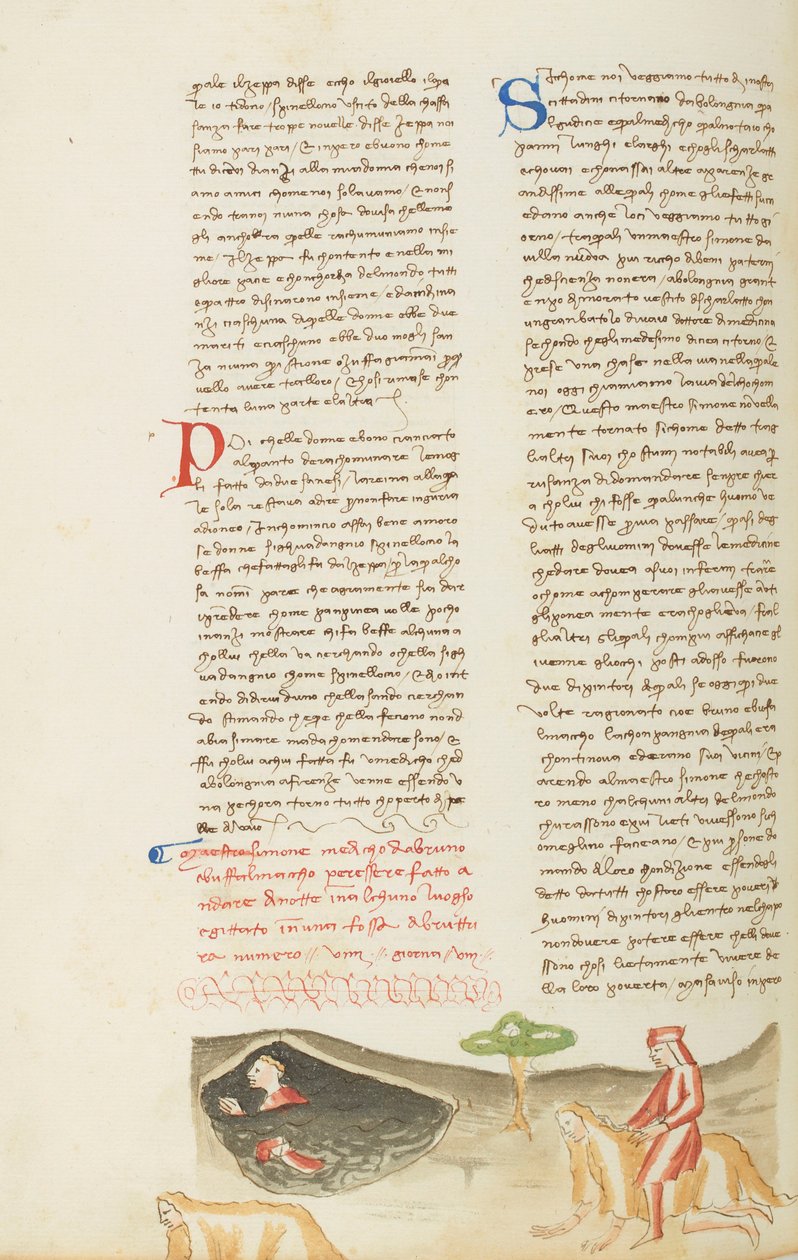 quale il zeppa disse eccho il gioiello il qua
le io ti dono / spinellocio uscito della chassa
sanza fare troppe novelle disse zeppa noi
siamo pari pari / et inpero e buono chome
tu dicevi dianzi alla mia donna che noi si
amo amici chome noi solavamo / et non
endo tra noi niuna chosa divisa che lle mo
gli anchora quelle rachumuniamo insie
me / il zeppa fu chontento e nella mi
gliore pace e chonchordia del mondo tutti
e quattro disinarono insieme / e da indi in
nzi ciaschuna di quelle donne ebbe due
mariti e ciaschuno ebbe duo mogli san
za niuna quistione o zuffa giammai per q
vello avere tra lloro / et chosi rimase chon
tenta luna parte e laltra
POi che lle donne ebono cianciato
alquanto del rachomunare le mog
li fatto da due sanesi / la reina alla qua
le sola restava a dire per non fare ingiuria
a dioneo / inchomincio assai bene amoro
se donne si ghuadangnio spinellocio la
beffa che fatta gli fu dal zeppa / per la qual cho
sa non mi pare che agramente sia da r
iprendere chome panpinea volle pocho
inanzi mostrare chi fa beffe alchuna a
cholui che lla va cierchando o che lla sigh
uadangnio
chome spinellocio / et io int
endo di dirvi d uno che lla s ando cierchan
do stimando che que che lla feciono non d
abiasimare ma da chomendare sono / et
ffu cholui a chui fatta fu u medicho che d
a bolongnia a firenze venne essendo u
na pechora torno tutto choperto di pe
lle di vaio
Maestro simone medicho da bruno
e buffalmaccho per essere fatto a
ndare di notte in alchuno luogho
e gittato in una fossa di brutti
ra numero // viiij // giorna viij //
SIchome noi veggiamo tutto di i nostri
cittadini ci tornano da bolongnia qua
l giudicie e qual medicho e qual notaio cho
panni lunghi e larghi e chogli scharlatti
e cho vai e chon assai altre aparenze gr
andissime alle quali chome gli efetti succ
edano anche loci veggiamo tutto gi
orno / tra quali un maestro simone da
villa nuova piu riccho di beni paterni
che di scienza non era / a bolongnia grant
enpo dimorato vestito di scharlatto chon
un gran batolo di vaio dottore di medicina
sechondo che gli medesimo dicea ci torno / et
prese una chasa nella via nella quale
noi oggi chiamiamo la via del chochom
ero / et questo maestro simone novella
mente tornato sichome detto trag
li altri suoi chostumi notabili avea per
usanza di domandare senpre chier
a cholui chi fosse qualunche huomo ve
duto avesse per via passare / quasi deg
li atti degli uomini dovesse le medicine
che dare dovea a suoi infermi trare
o chome a chomperare gli avesse a tut
gli ponea mente e racholglieva / et al
gli altri gli quali chon piu afficha ne gl
i venne gli occhi posti adosso furono
due dipintori de quali se oggi qui due
volte ragionato cioe bruno e bufa
lmaccho la chonpangnia de quali era
chontinova ed erano suoi vicini / et p
arendo al maestro simone che chosto
ro meno che alchuni altri del mondo
churassono e piu lieti vivessono sich
ome gli no faceano / et piu persone do
mando di loro chondizione essendogli
detto da tutti chostoro essere poveri
huomini dipintori gli entro nel chapo
non dovere potere essere che lli dove
ssono chosi lietamente vivere de
lla loro poverta / ma saviso inpero